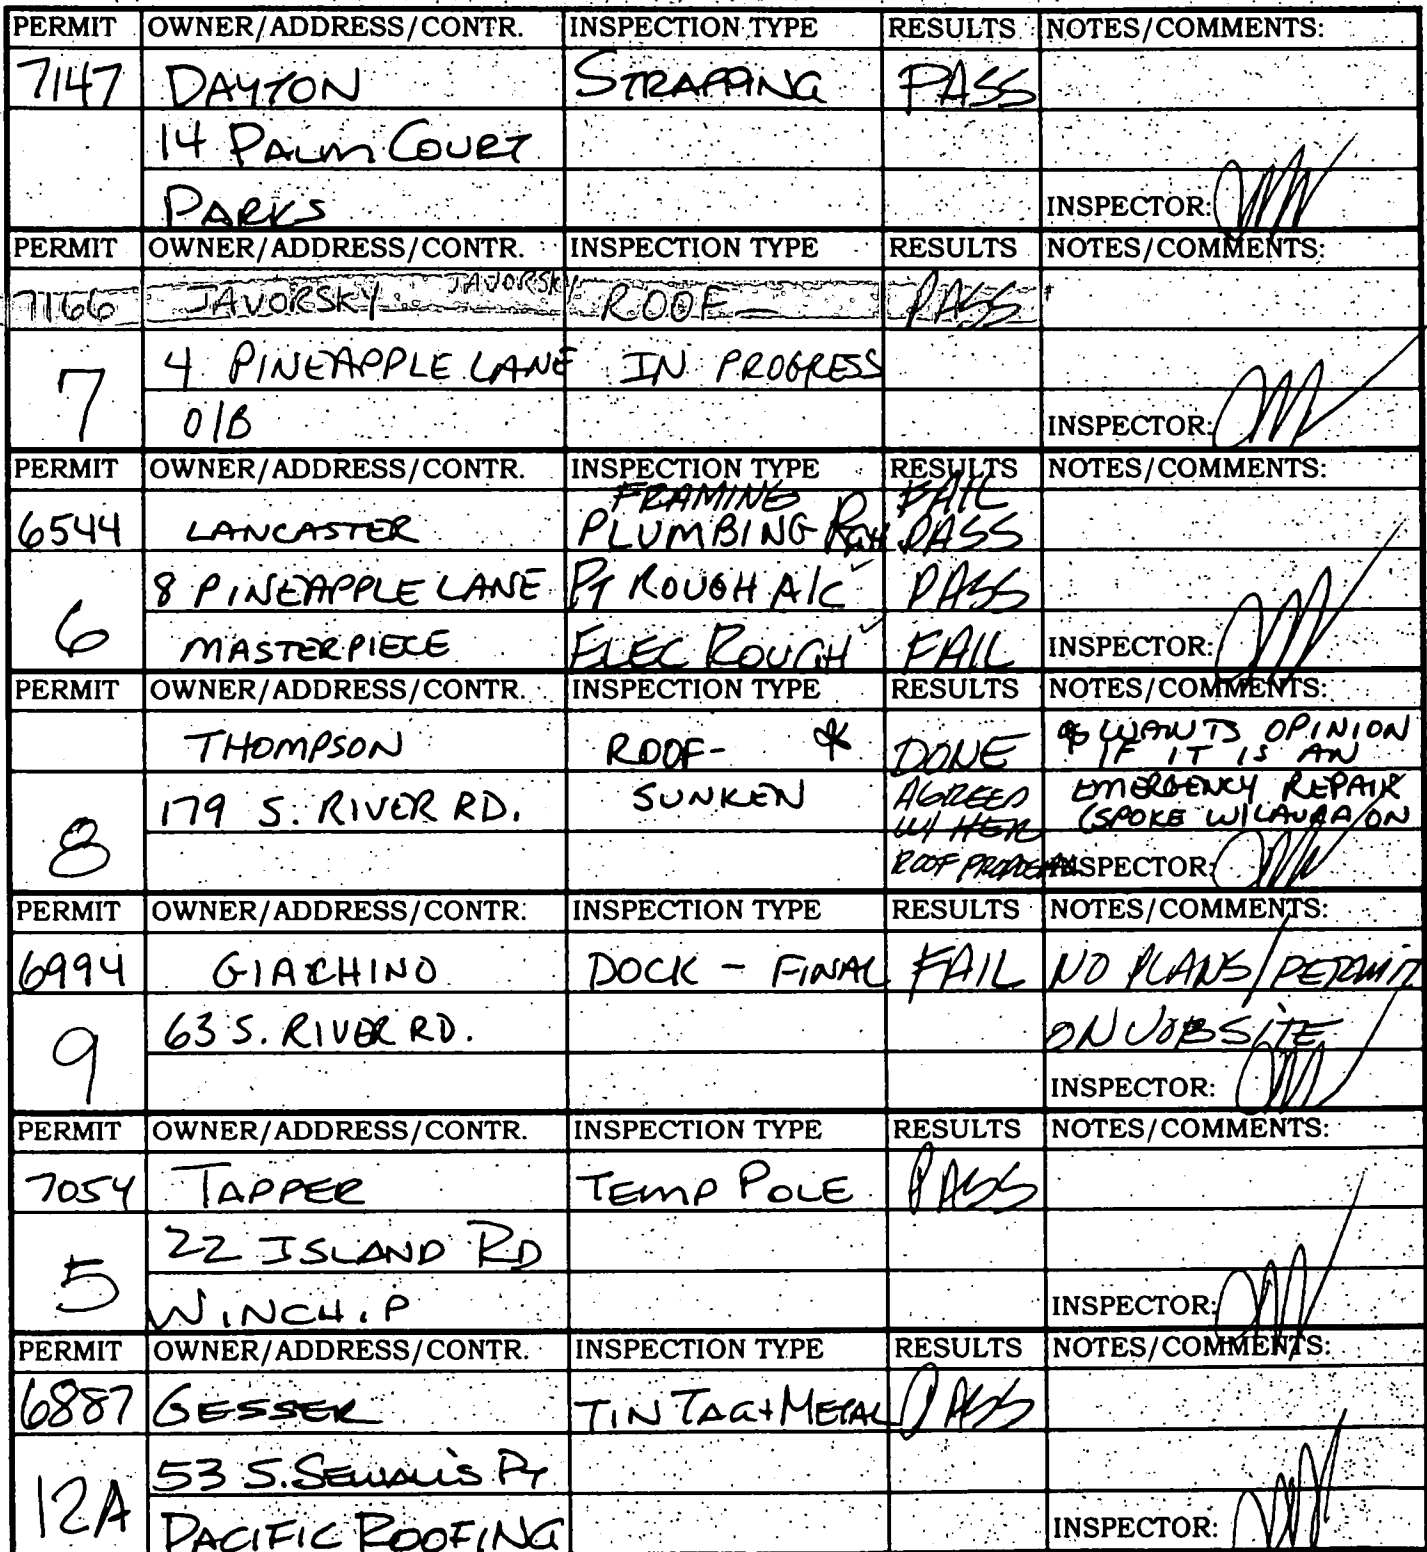 PERMIT OWNER/ADDRESS/CONTR. INSPECTION TYPE RESULTS NOTES/COMMENTS:
7147 DAYTON STRAPPING PASS
14 PALM COURT
PARKS INSPECTOR:
PERMIT OWNER/ADDRESS/CONTR. INSPECTION TYPE RESULTS NOTES/COMMENTS:
7166 JAVORSKY JAVORSKY ROOF PASS
7 4 PINEAPPLE LANE IN PROGRESS
O/B INSPECTOR:
PERMIT OWNER/ADDRESS/CONTR. INSPECTION TYPE RESULTS NOTES/COMMENTS:
FRAMING FAIL
6544 LANCASTER PLUMBING RGH PASS
8 PINEAPPLE LANE PT ROUGH A/C PASS
6 MASTERPIECE ELEC ROUGH FAIL INSPECTOR:
PERMIT OWNER/ADDRESS/CONTR. INSPECTION TYPE RESULTS NOTES/COMMENTS:
THOMPSON ROOF- * DONE * WANTS OPINION
IF IT IS AN
179 S. RIVER RD. SUNKEN AGREED EMERGENCY REPAIR
8 W/ HER (SPOKE W/LAURA ON
ROOF PROBLEM INSPECTOR:
PERMIT OWNER/ADDRESS/CONTR. INSPECTION TYPE RESULTS NOTES/COMMENTS:
6994 GIACHINO DOCK - FINAL FAIL NO PLANS/PERMIT
9 63 S. RIVER RD. ON JOBSITE
INSPECTOR:
PERMIT OWNER/ADDRESS/CONTR. INSPECTION TYPE RESULTS NOTES/COMMENTS:
7054 TAPPER TEMP POLE PASS
5 22 ISLAND RD
WINCHIP INSPECTOR:
PERMIT OWNER/ADDRESS/CONTR. INSPECTION TYPE RESULTS NOTES/COMMENTS:
6887 GESSER TIN TAG+METAL PASS
12A 53 S. SEWALL'S PT
PACIFIC ROOFING INSPECTOR: